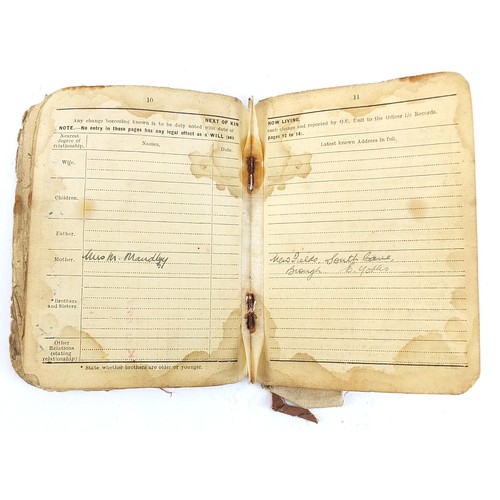 10
NEXT OF KIN
Any change becoming known is to be duly noted with date of
NOTE.—No entry in these pages has any legal effect as a WILL (see
Nearest degree of relationship.
Names.
Date.
Wife.
Children.
Father.
Mother.
Mrs M. Mandley
* Brothers and Sisters.
Other Relations (stating relationship)
* State whether brothers are older or younger.
11
NOW LIVING.
such change and reported by O.C. Unit to the Officer i/c Records.
pages 12 to 14).
Latest known Address in full.
Fields, South Cave,
Brough E. Yorks